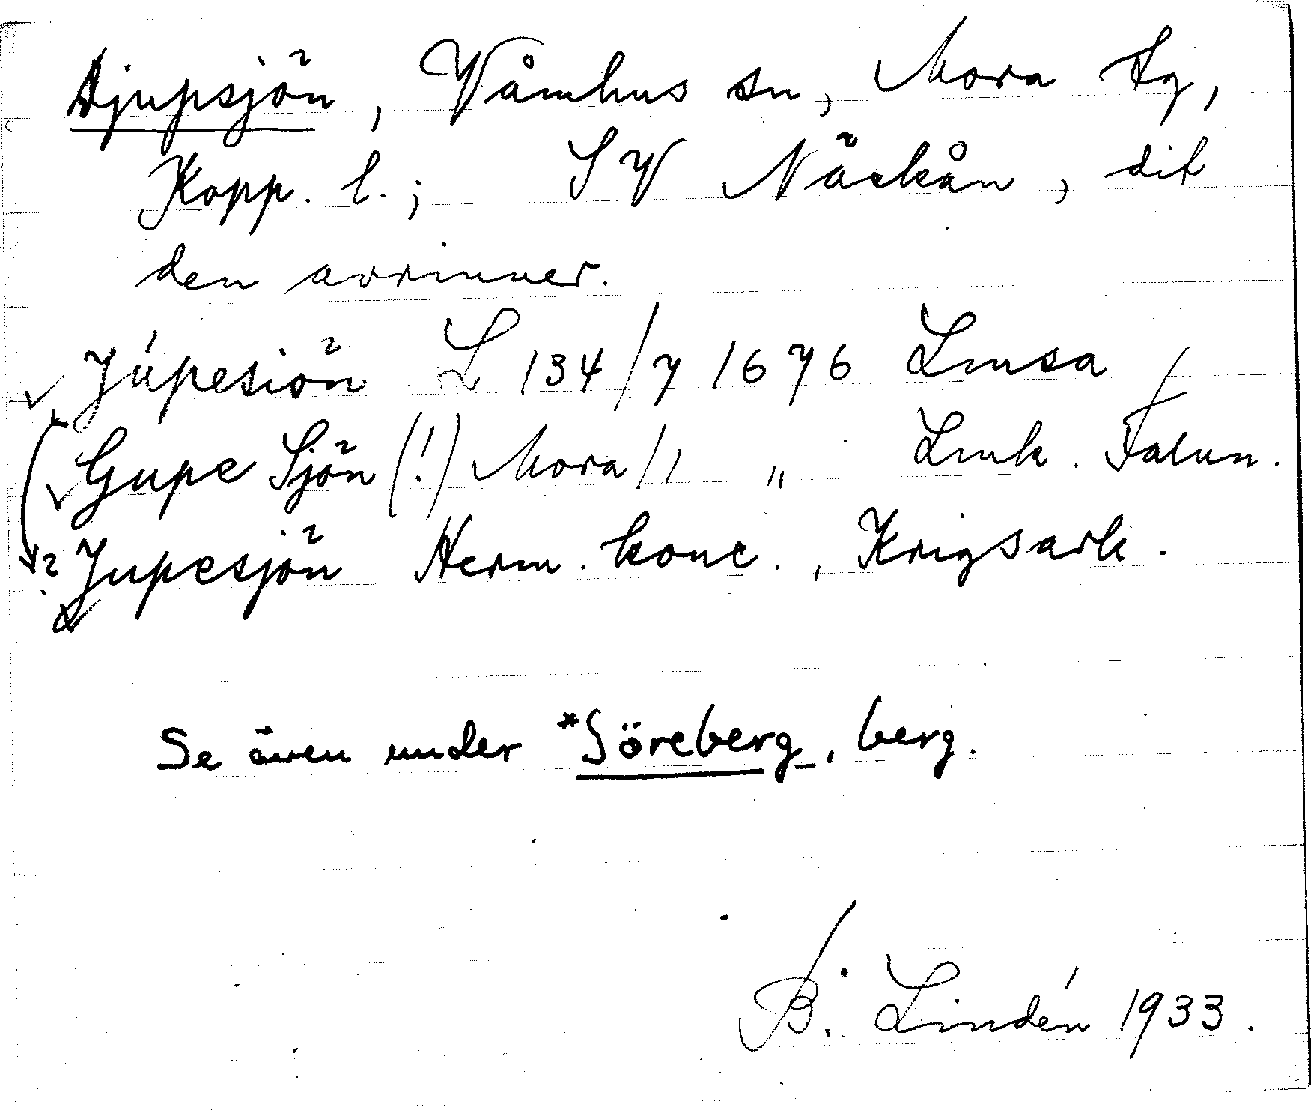 Djupsjön, Våmhus sn, Mora tg,
Kopp. l.; SV Näckån, dit
den avrinner.
Júpesiön L 134/7 1676 Lmsa
Gupe Sjön (!) Mora 11 " Lmk. Falun.
? Jupesjön Herm. konc., Krigsark.
Se även under *Söreberg, berg.
B. Lindén 1933.